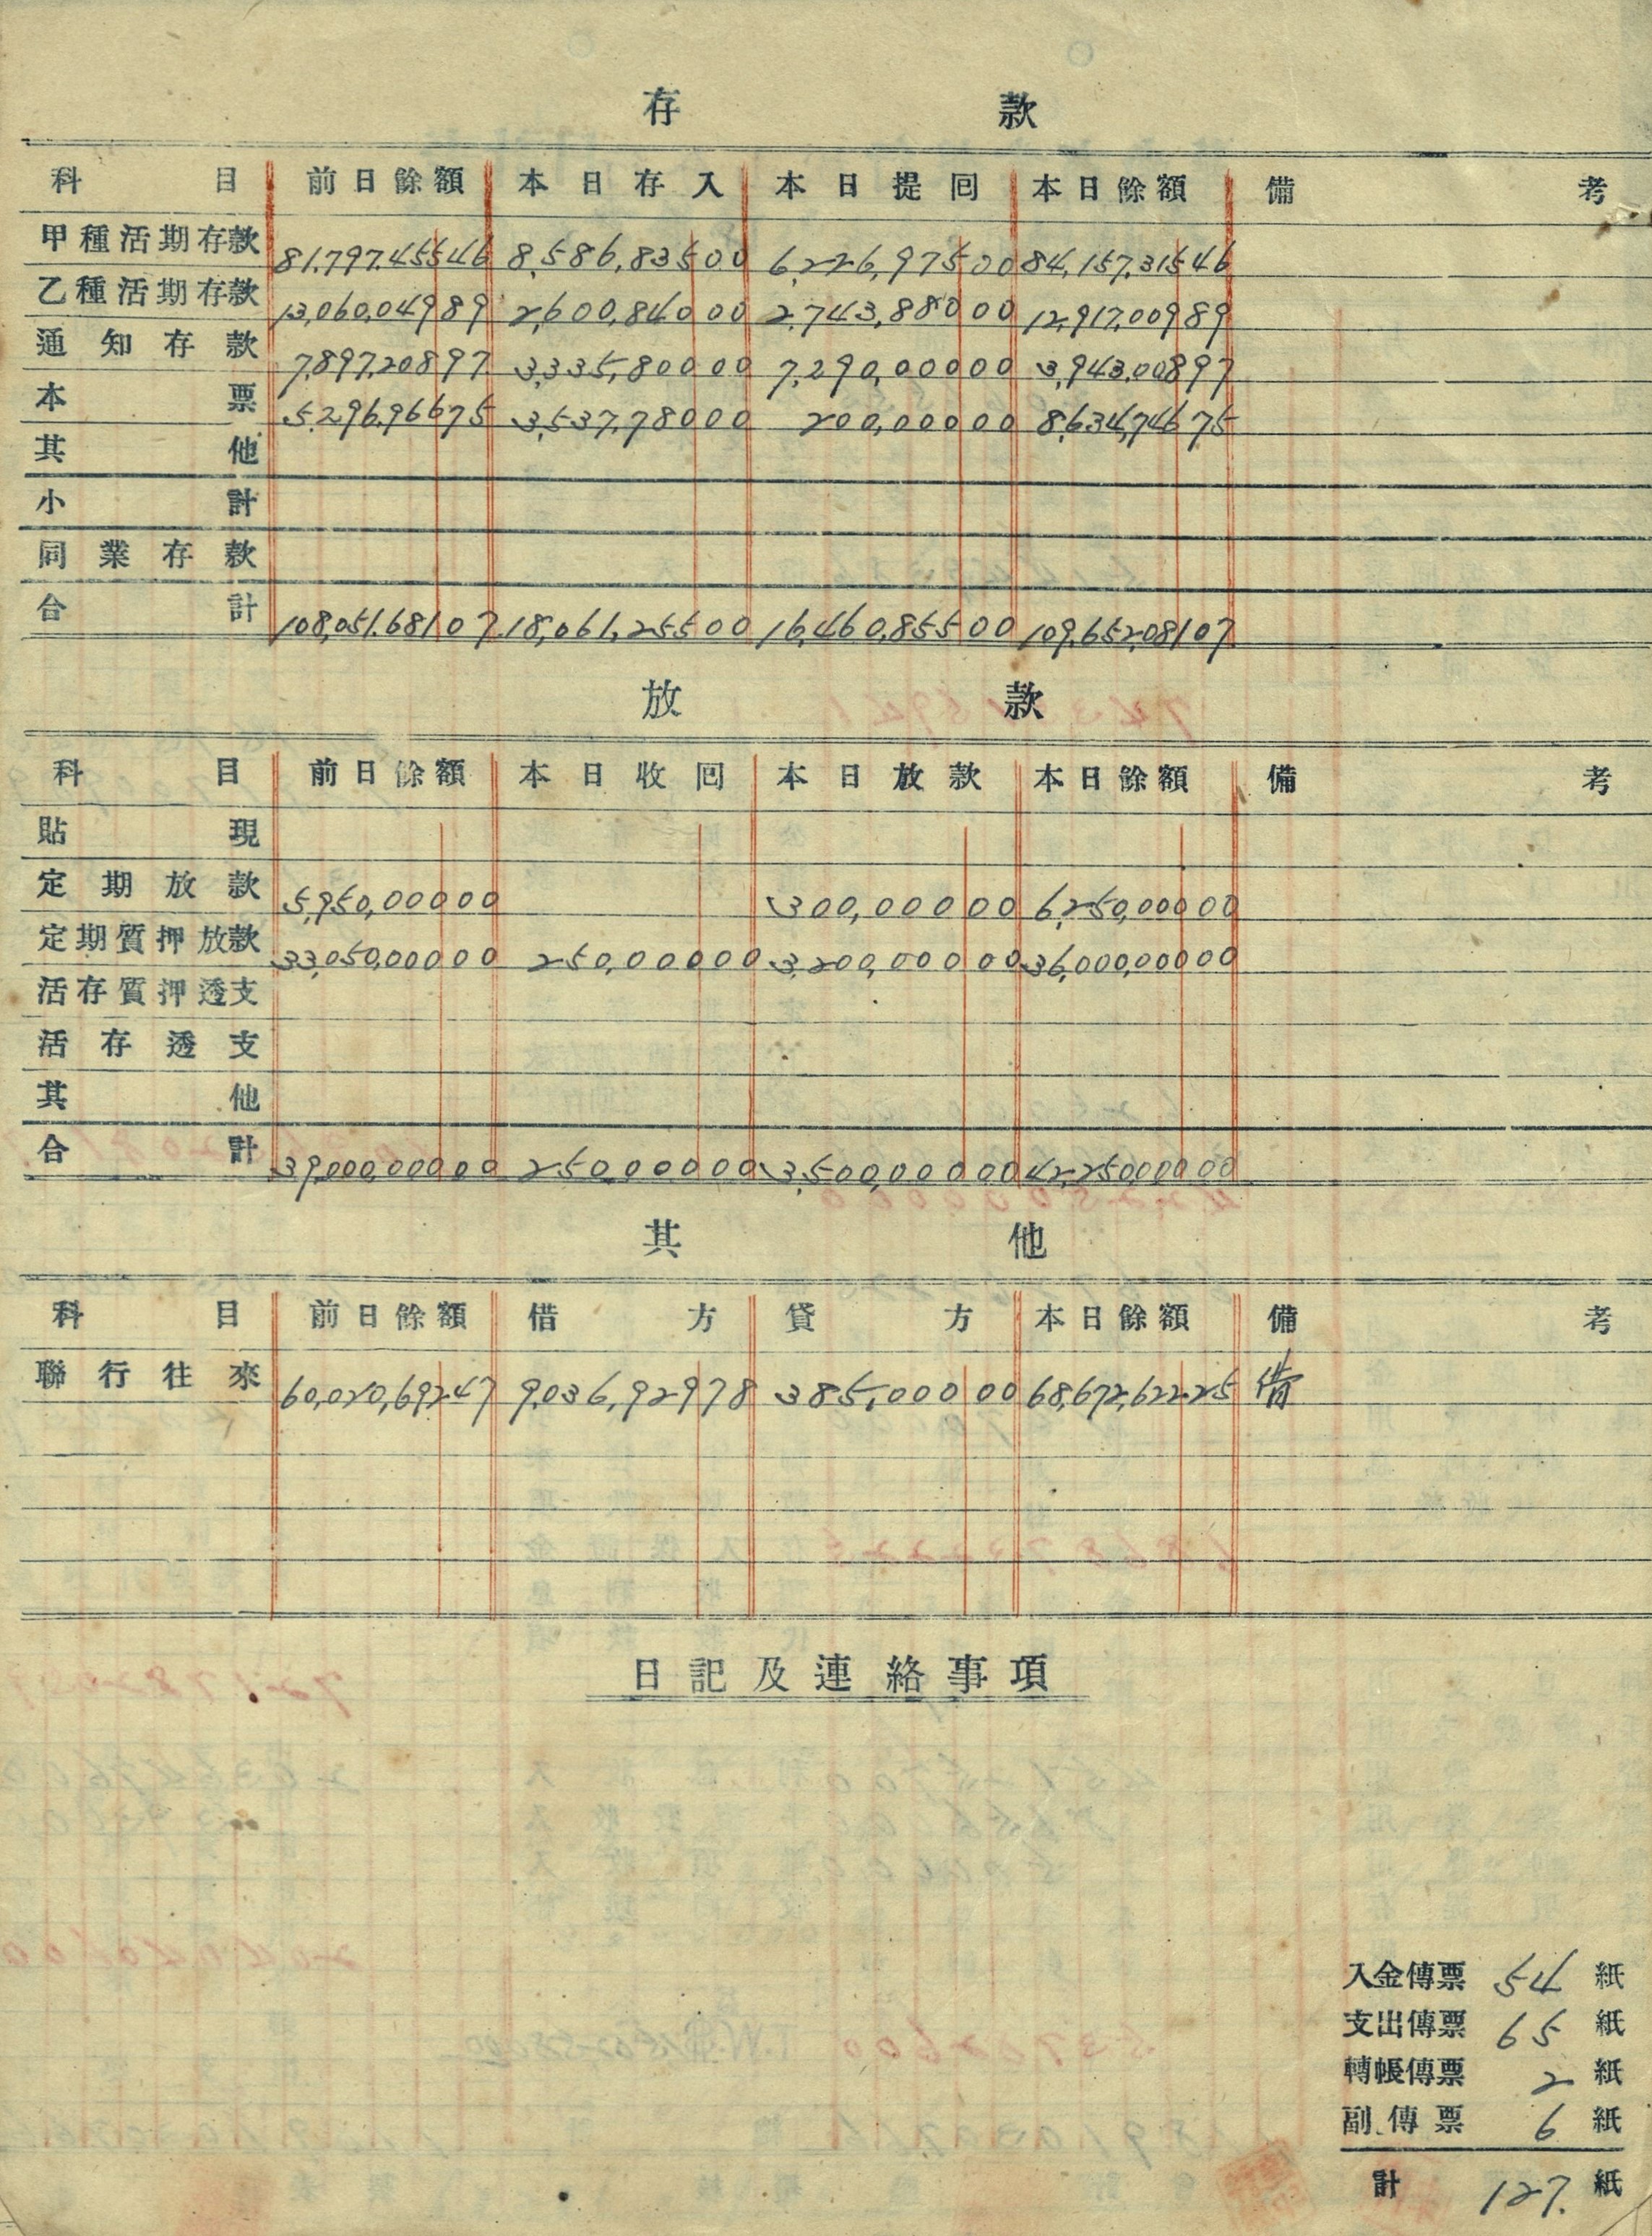 存款
科目 前日餘額 本日存入 本日提回 本日餘額 備考
甲種活期存款 81,797,455 46 8,586,835 00 6,226,975 00 84,157,315 46
乙種活期存款 13,060,049 89 2,600,840 00 2,743,880 00 12,917,009 89
通知存款 7,897,208 97 3,335,800 00 7,290,000 00 3,943,008 97
本票 5,296,966 75 3,537,780 00 200,000 00 8,634,746 75
其他
小計
同業存款
合計 108,051,681 07 18,061,255 00 16,460,855 00 109,652,081 07
放款
科目 前日餘額 本日收回 本日放款 本日餘額 備考
貼現
定期放款 5,950,000 00 300,000 00 6,250,000 00
定期質押放款 33,050,000 00 250,000 00 3,200,000 00 36,000,000 00
活存質押透支
活存透支
其他
合計 39,000,000 00 250,000 00 3,500,000 00 42,250,000 00
其他
科目 前日餘額 借方 貸方 本日餘額 備考
聯行往來 60,020,692 47 9,036,929 78 385,000 00 68,672,622 25 借
日記及連絡事項
入金傳票 54 紙
支出傳票 65 紙
轉帳傳票 2 紙
副傳票 6 紙
計 127. 紙